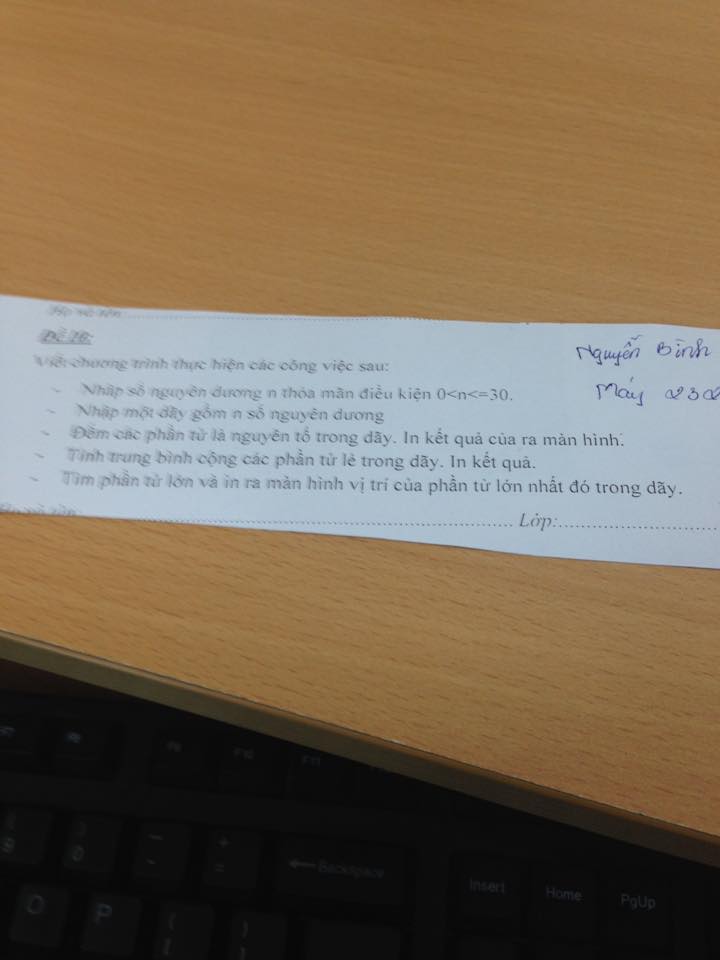 Họ và tên:
Đề 20:
Viết chương trình thực hiện các công việc sau:
Nguyễn Bình
- Nhập số nguyên dương n thỏa mãn điều kiện 0<n<=30.
Máy 232
- Nhập một dãy gồm n số nguyên dương
- Đếm các phần tử là nguyên tố trong dãy. In kết quả của ra màn hình.
- Tính trung bình cộng các phần tử lẻ trong dãy. In kết quả.
- Tìm phần tử lớn và in ra màn hình vị trí của phần tử lớn nhất đó trong dãy.
Lớp:
F9
F10
F11
Backspace
Insert
Home
PgUp
9
0
-
+
=
O
P